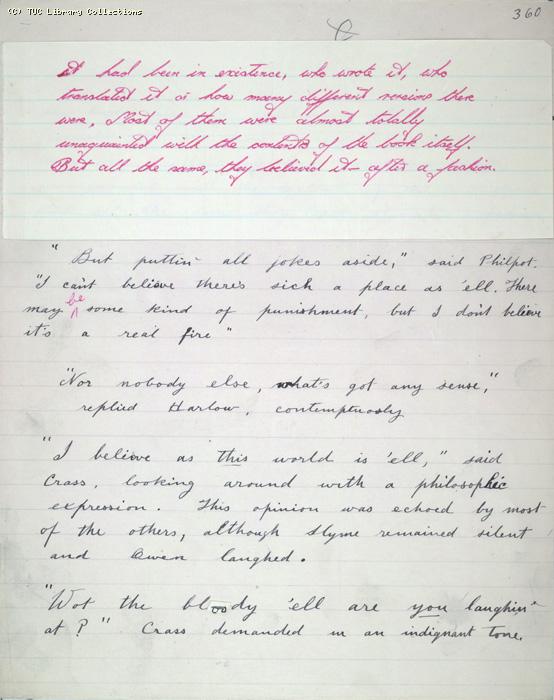 (C) TUC Library Collections
360
it had been in existence, who wrote it, who
translated it or how many different versions there
were. Most of them were almost totally
unacquainted with the contents of the book itself.
But all the same, they believed it – after a fashion.
" But puttin all jokes aside," said Philpot.
"I can't believe theres sich a place as 'ell. There
may be some kind of punishment, but I don't believe
it's a real fire"
"Nor nobody else, what's got any sense,"
replied Harlow, contemptuously
"I believe as this world is 'ell," said
Crass, looking around with a philosophic
expression. This opinion was echoed by most
of the others, although Slyme remained silent
and Owen laughed.
"Wot the bloody 'ell are you laughin'
at?" Crass demanded in an indignant tone.